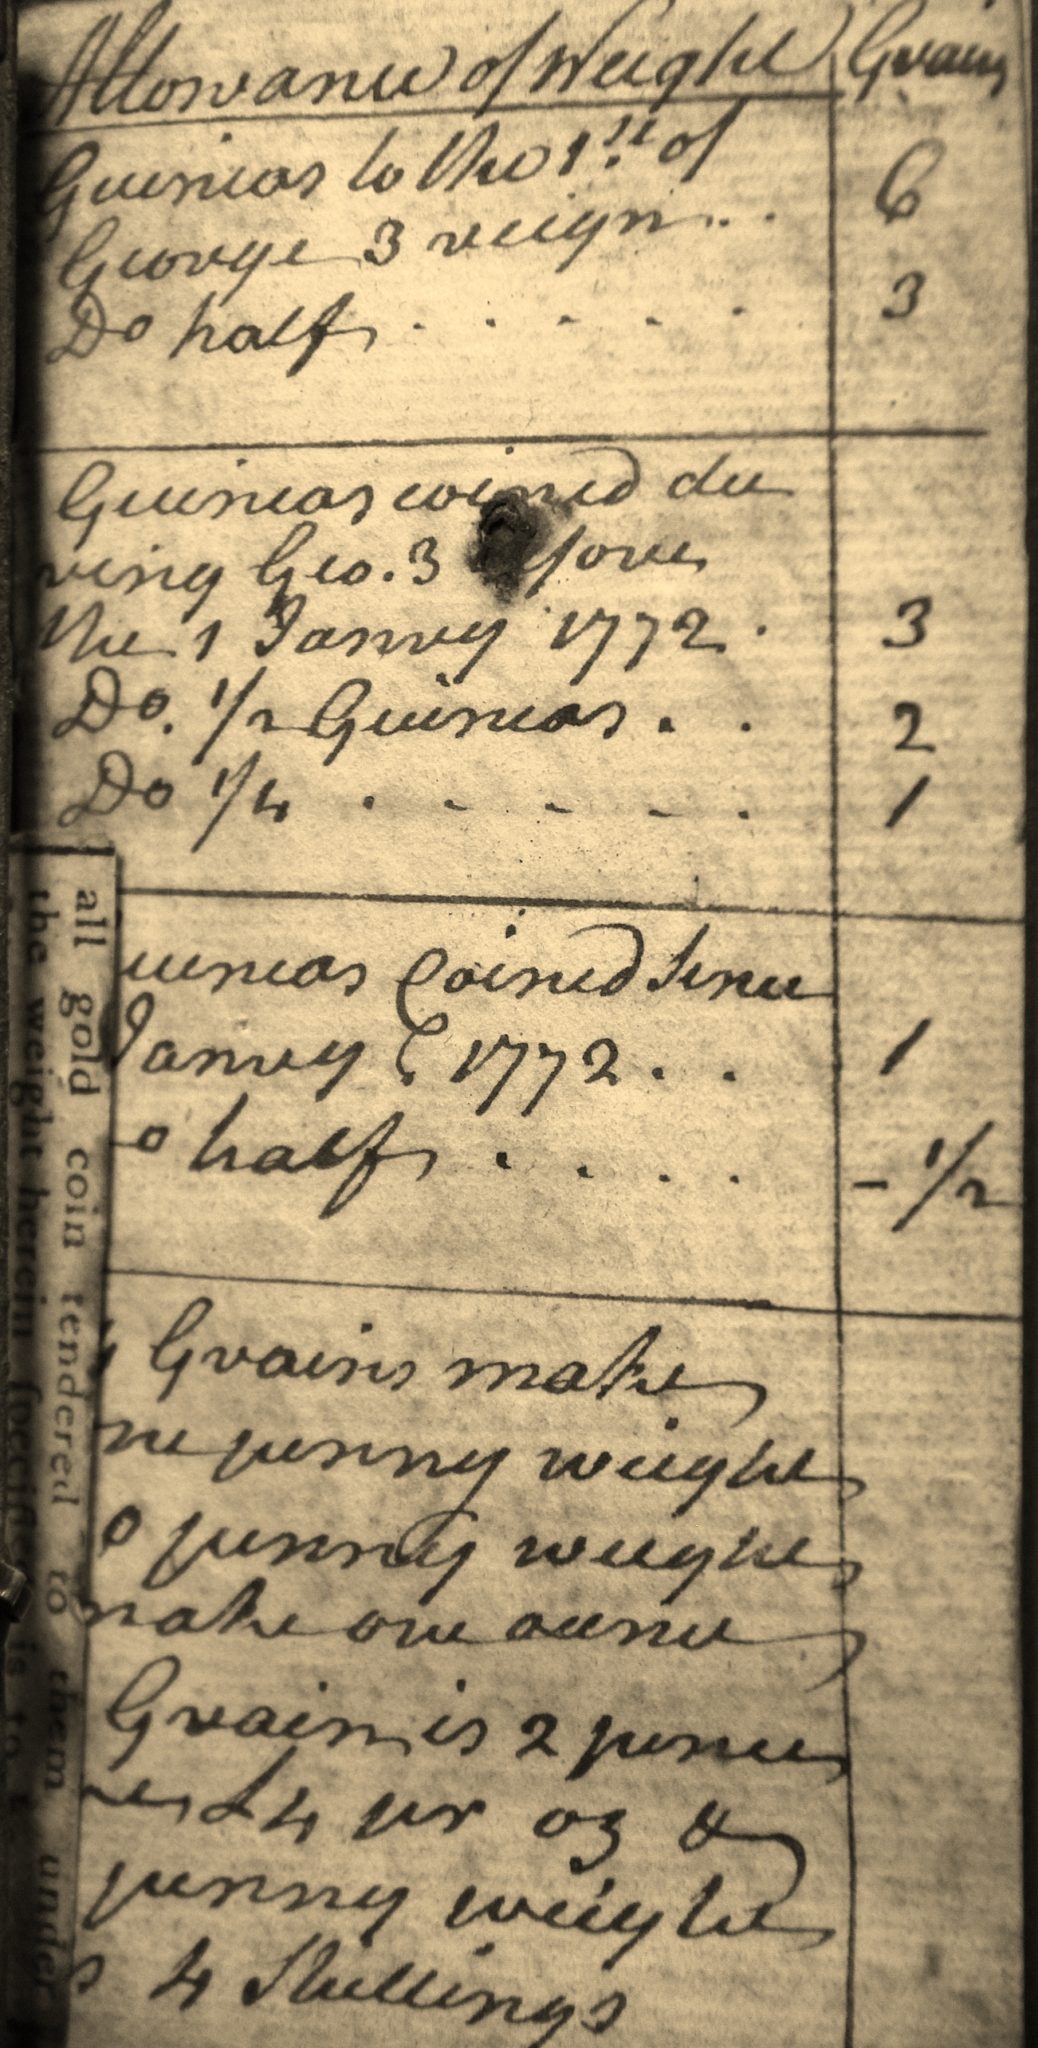 Allowance of Weight Grains
Guineas to the 1st. of
George 3 reign .. 6
Do half . . . . . 3
Guineas coined du
ring Geo. 3 before
the 1 Janry 1772 . 3
Do. 1/2 Guineas . . 2
Do 1/4 . - - - . 1
uineas Coined Since
Janry 1772 . . 1
o half . . . . - 1/2
4 Grains make
ne penny weight
0 penny weight
make one ounce
Grain is 2 pence
£4 pr oz &
penny weight
s 4 Shillings
all gold coin rendered to them under
the weight herein specified is to